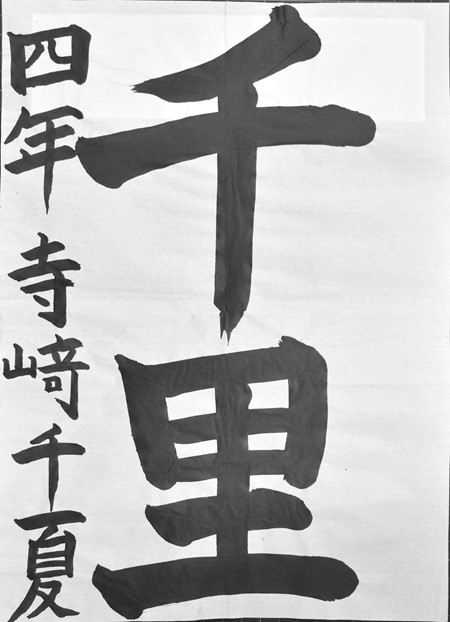 千里
四年 寺﨑千夏